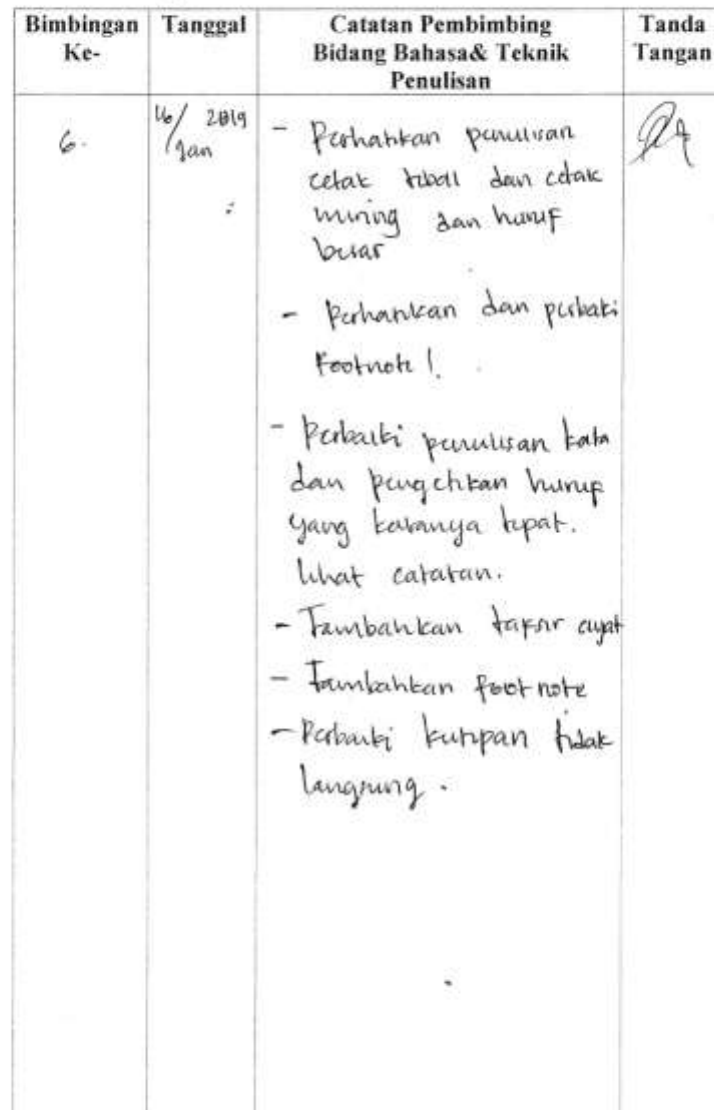 Bimbingan Ke-
Tanggal
Catatan Pembimbing
Bidang Bahasa& Teknik
Penulisan
Tanda Tangan
6.
16/ Jan 2019
- Perhatikan penulisan
cetak tebal dan cetak
miring dan huruf
besar
- Perhatikan dan perbaiki
Footnote !
- Perbaiki penulisan kata
dan pengetikan huruf
yang katanya tepat.
lihat catatan.
- Tambahkan tafsir ayat
- Tambahkan footnote
- Perbaiki kutipan tidak
langsung .